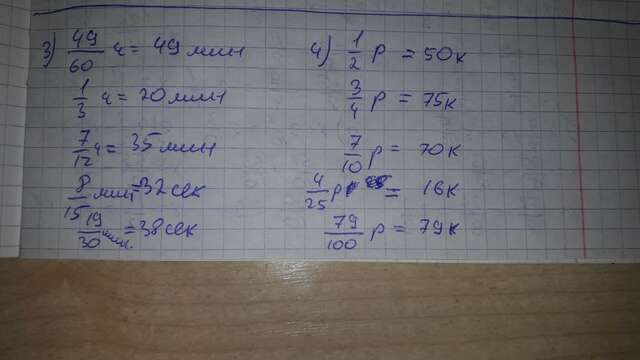 3) 49/60 ч = 49 мин
1/3 ч = 20 мин
7/12 ч = 35 мин
8/15 мин = 32 сек
19/30 мин. = 38 сек
4) 1/2 р = 50 к
3/4 р = 75 к
7/10 р = 70 к
4/25 р = 16 к
79/100 р = 79 к